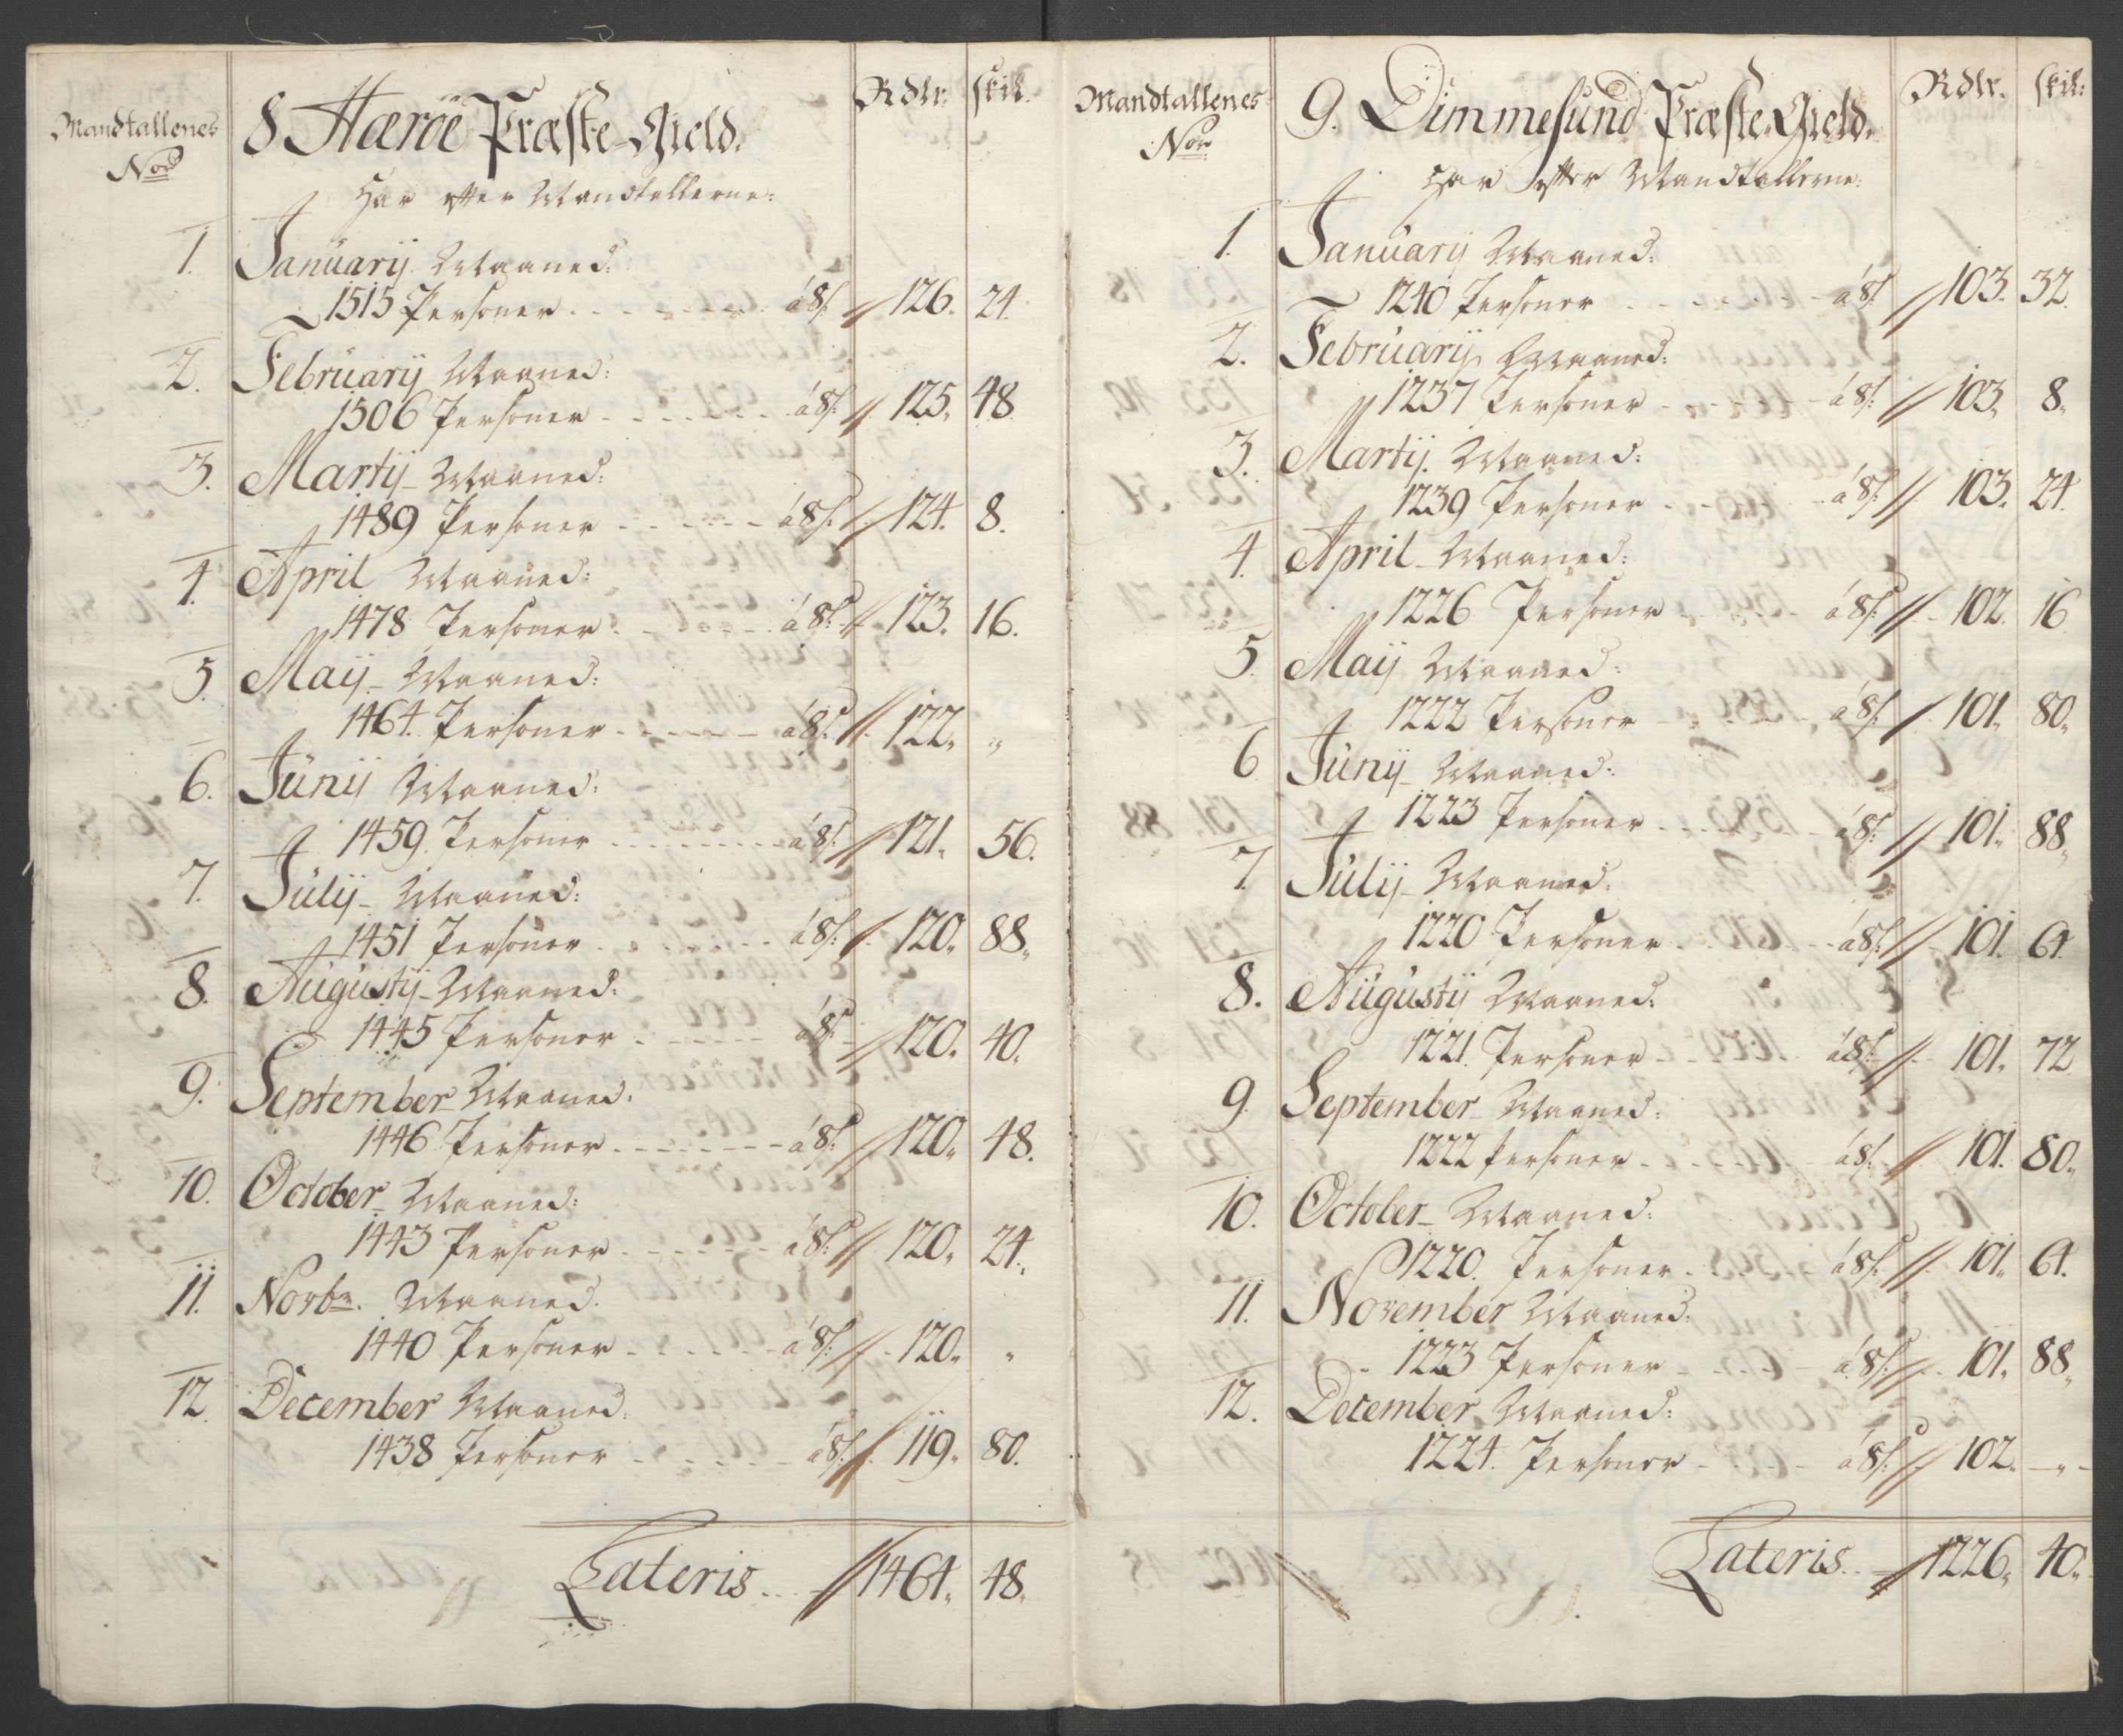 Mandtallenes
No.
8 Hæröe Præste-Gield.
Rdlr. skil.
Har efter Mandtallerne:
1. Januarij Maaned:
1515 Personer . . . . . . á 8 s: // 126. 24.
2. Februarij Maaned:
1506 Personer . . . . . . á 8 s: // 125. 48.
3. Martij Maaned:
1489 Personer . . . . . . á 8 s: // 124. 8.
4. April Maaned:
1478 Personer . . . . . . á 8 s: // 123. 16.
5. Maij Maaned:
1464. Personer . . . . . . á 8 s: // 122. "
6. Junij Maaned:
1459. Personer . . . . . . á 8 s: // 121. 56.
7. Julij Maaned:
1451 Personer . . . . . . á 8 s: // 120. 88.
8. Augustij Maaned:
1445 Personer . . . . . . á 8 s: // 120. 40.
9. September Maaned:
1446 Personer . . . . . . á 8 s: // 120. 48.
10. October Maaned:
1443 Personer . . . . . . á 8 s: // 120. 24.
11. Novbr. Maaned.
1440 Personer . . . . . . á 8 s: // 120. "
12. December Maaned:
1438 Personer . . . . . . á 8 s: // 119. 80.
Lateris . . // 1464. 48.
Mandtallenes
No.
9. Dimmesund Præste-Gield.
Rdlr. skil:
Har efter Mandtallerne:
1. Januarij Maaned:
1240 Personer . . . . . . á 8 s: // 103. 32.
2. Februarij Maaned:
1237 Personer . . . . . . á 8 s: // 103. 8.
3. Martij. Maaned:
1239 Personer . . . . . . á 8 s: // 103. 24.
4. April Maaned:
1226 Personer . . . . . . á 8 s: // 102. 16
5. Maij Maaned:
1222 Personer . . . . . . á 8 s: // 101. 80.
6 Junij Maaned:
1223 Personer . . . . . . á 8 s: // 101. 88.
7. Julij Maaned:
1220 Personer . . . . . . á 8 s: // 101. 64.
8. Augustij Maaned:
1221. Personer . . . . . . á 8 s: // 101. 72
9. September Maaned:
1222 Personer . . . . . . á 8 s: // 101. 80.
10. October Maaned:
1220. Personer . . . . . . á 8 s: // 101. 64.
11. November Maaned:
1223 Personer . . . . . . á 8 s: // 101. 88.
12. December Maaned:
1224. Personer . . . . . . á 8 s: // 102. — " —
Lateris . . // 1226. 40.